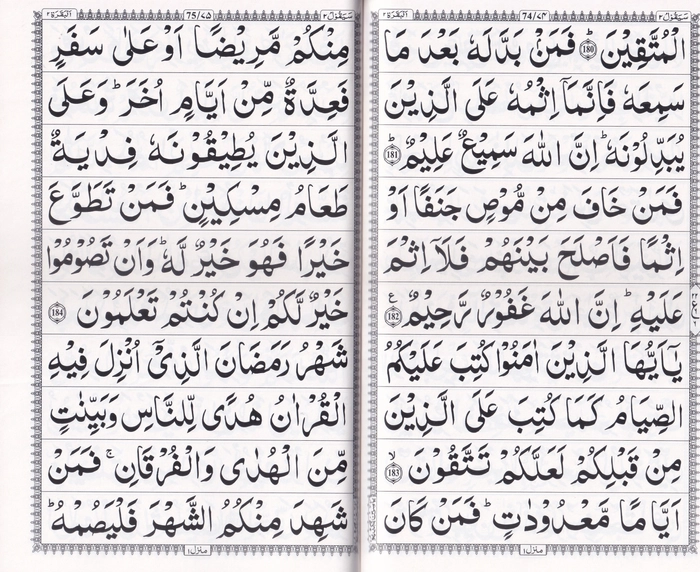 البقرة ۲
74/۷۴
سیقول ۲
الْمُتَّقِيْنَ ؕ 180 فَمَنْۢ بَدَّلَهٗ بَعْدَ مَا
سَمِعَهٗ فَاِنَّمَاۤ اِثْمُهٗ عَلَى الَّذِيْنَ
يُبَدِّلُوْنَهٗ ؕ اِنَّ اللّٰهَ سَمِيْعٌ عَلِيْمٌ ؕ 181
فَمَنْ خَافَ مِنْ مُّوْصٍ جَنَفًا اَوْ
اِثْمًا فَاَصْلَحَ بَيْنَهُمْ فَلَاۤ اِثْمَ
عَلَيْهِ ؕ اِنَّ اللّٰهَ غَفُوْرٌ رَّحِيْمٌ ع 182
يٰۤاَيُّهَا الَّذِيْنَ اٰمَنُوْا كُتِبَ عَلَيْكُمُ
الصِّيَامُ كَمَا كُتِبَ عَلَى الَّذِيْنَ
مِنْ قَبْلِكُمْ لَعَلَّكُمْ تَتَّقُوْنَ ۙ 183
اَيَّامًا مَّعْدُوْدٰتٍ ؕ فَمَنْ كَانَ
منزل ۱
البقرة ۲
75/۷۵
سیقول ۲
مِنْكُمْ مَّرِيْضًا اَوْ عَلٰى سَفَرٍ
فَعِدَّةٌ مِّنْ اَيَّامٍ اُخَرَ ؕ وَعَلَى
الَّذِيْنَ يُطِيْقُوْنَهٗ فِدْيَةٌ
طَعَامُ مِسْكِيْنٍ ؕ فَمَنْ تَطَوَّعَ
خَيْرًا فَهُوَ خَيْرٌ لَّهٗ ؕ وَاَنْ تَصُوْمُوْا
خَيْرٌ لَّكُمْ اِنْ كُنْتُمْ تَعْلَمُوْنَ 184
شَهْرُ رَمَضَانَ الَّذِيْۤ اُنْزِلَ فِيْهِ
الْقُرْاٰنُ هُدًى لِّلنَّاسِ وَبَيِّنٰتٍ
مِّنَ الْهُدٰى وَالْفُرْقَانِ ۚ فَمَنْ
شَهِدَ مِنْكُمُ الشَّهْرَ فَلْيَصُمْهُ ؕ
منزل ۱